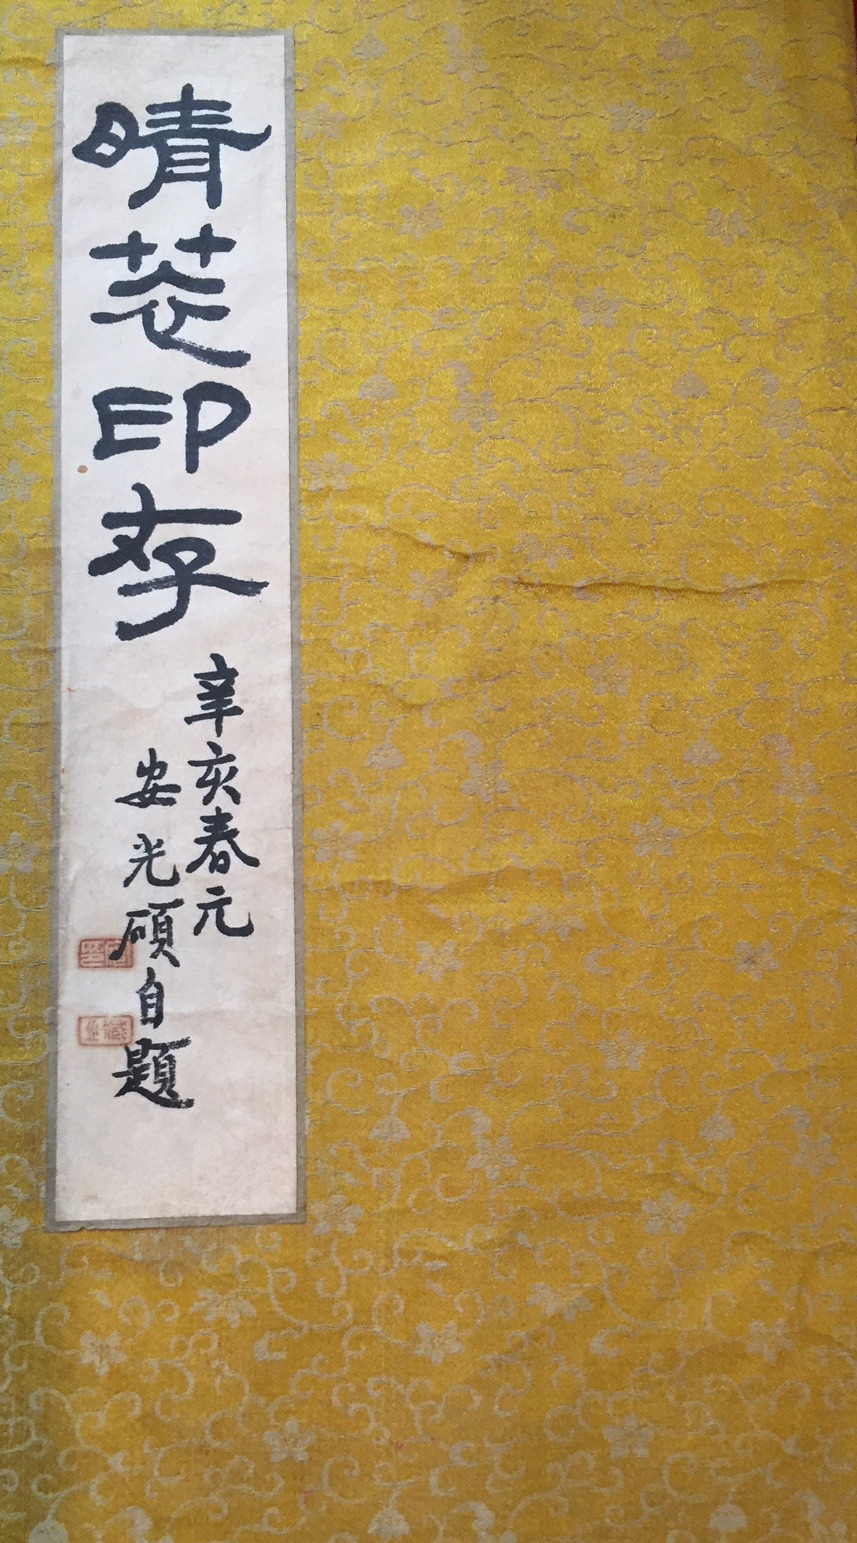 晴印存
辛亥春元
安光碩自題